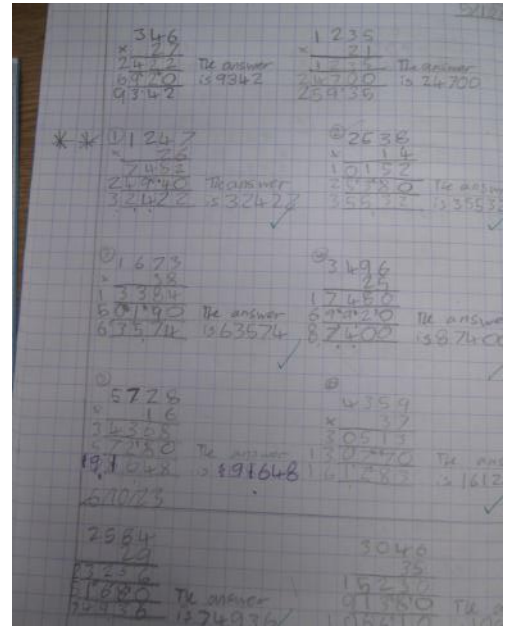 346
× 27
2422
6920
9342
The answer
is 9342
1235
× 21
1235
24700
25935
The answer
is 24700
① 1247
× 26
7482
24940
32422
The answer
is 32422
② 2538
× 14
10152
25380
35532
The
is 3553
③ 1673
× 38
13384
50190
63574
The answer
is 63574
④ 3496
25
17480
69920
87400
The answer
is 8740
5728
× 16
34368
57280
91648
The answer
is 91648
4359
× 37
30513
130770
161283
The
is 1612
6/10/23
2584
29
23256
51680
74936
The answer
is 74936
3046
35
15230
91380
106610
The